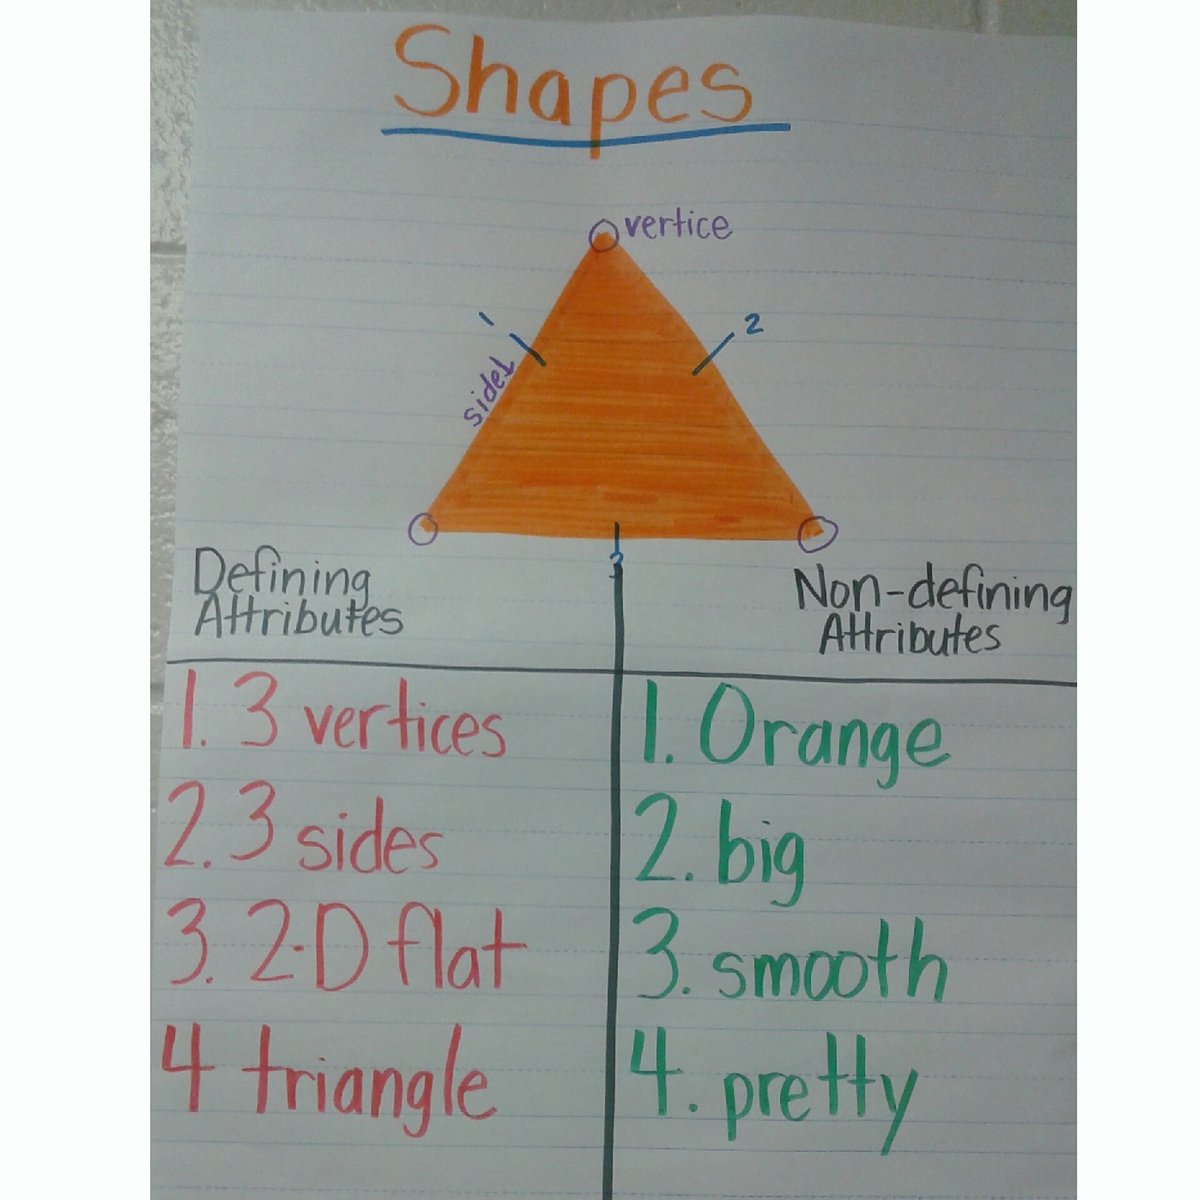 Shapes
vertice
1
2
sides
3
Defining
Attributes
Non-defining
Attributes
1. 3 vertices
2. 3 sides
3. 2-D flat
4 triangle
1. Orange
2. big
3. smooth
4. pretty